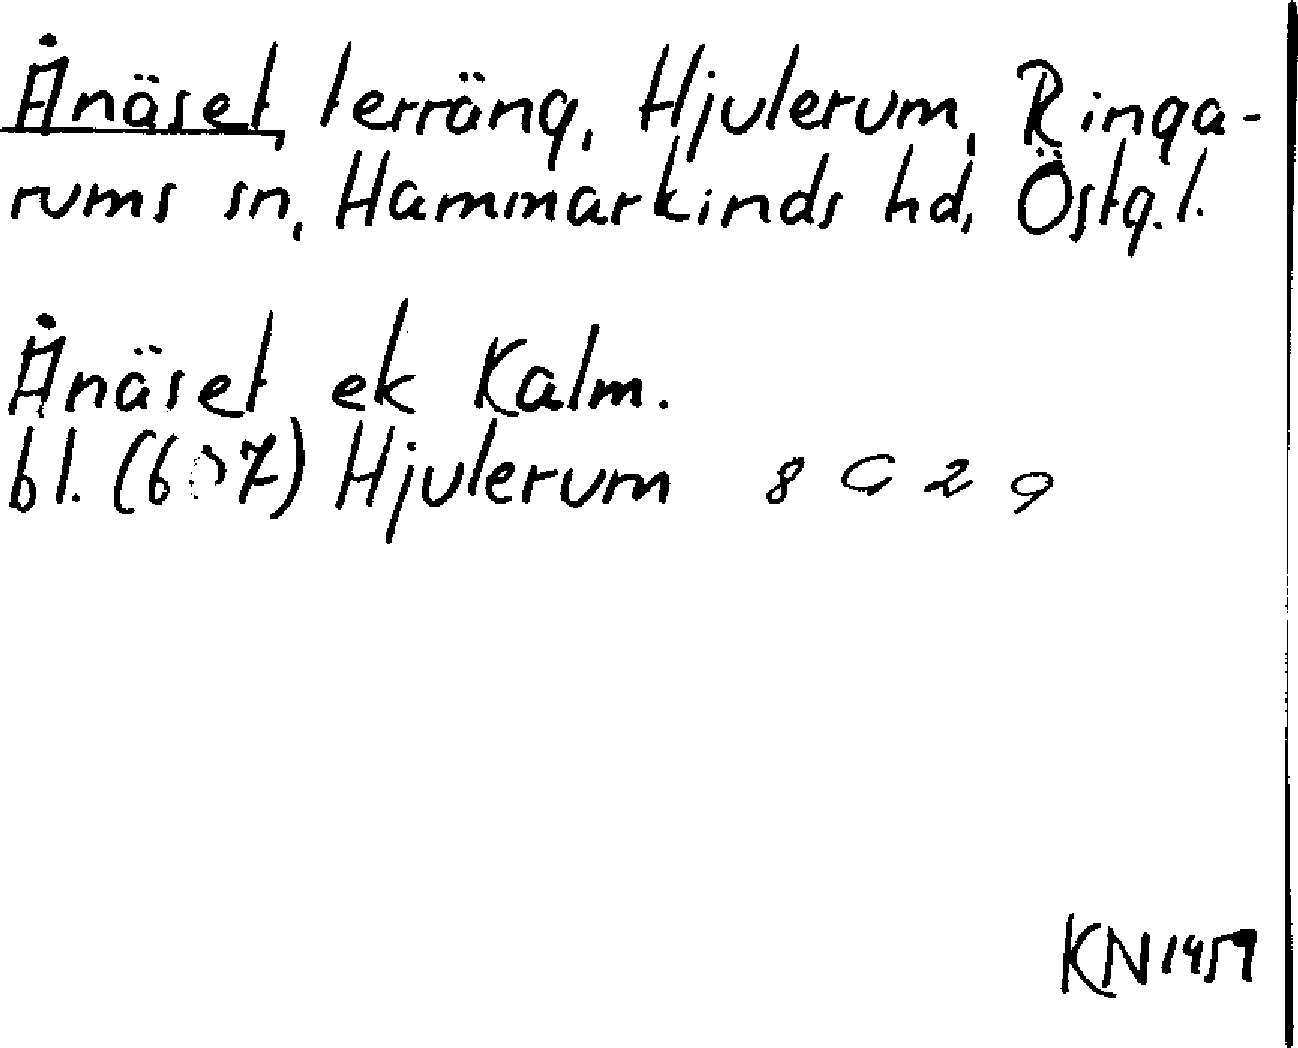 Ånäset, terräng, Hjulerum, Ringa-
rums sn, Hammarkinds hd, Östg.l.
Ånäset ek Kalm.
bl. (607) Hjulerum 8 G 2 9
KN 1959